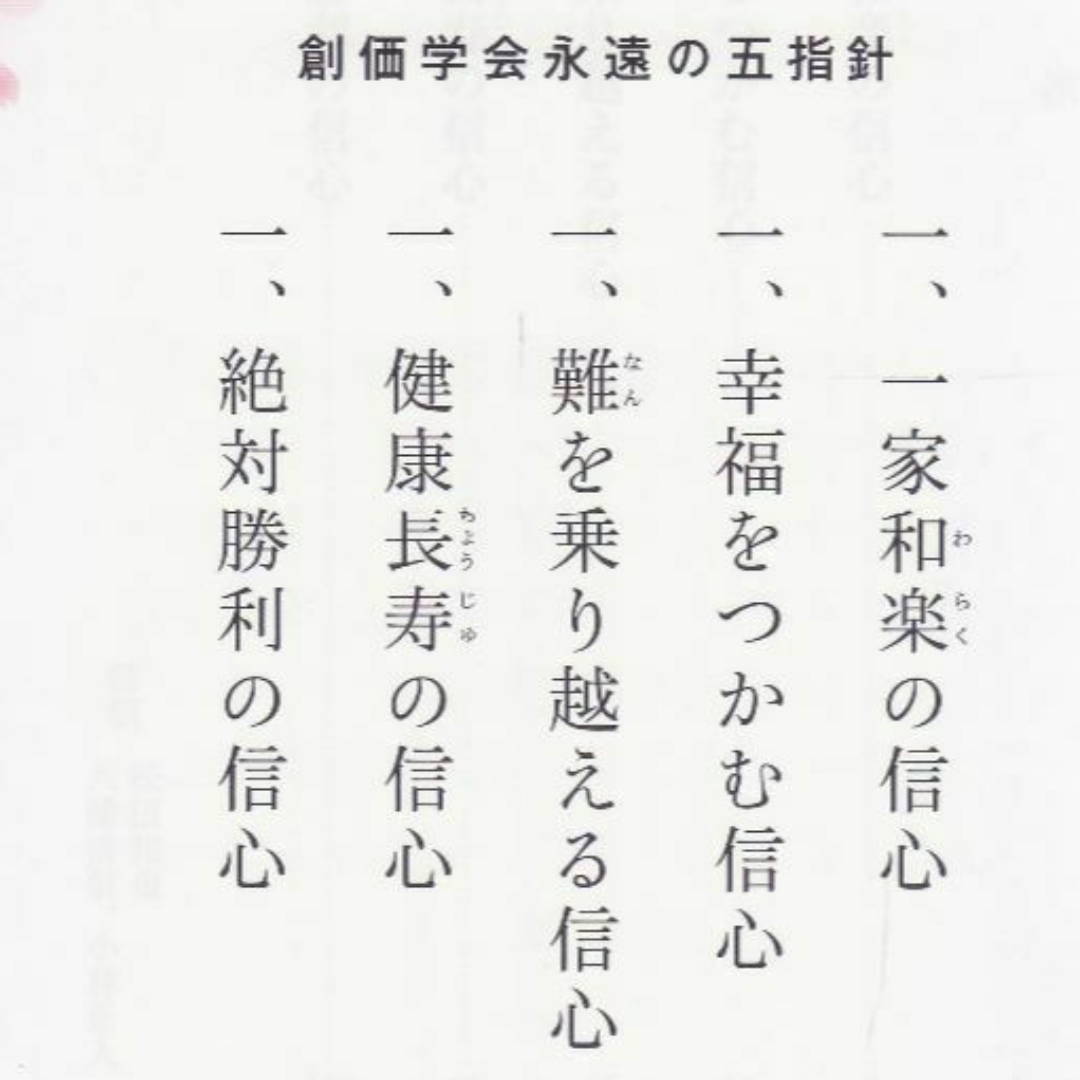 創価学会永遠の五指針
一、一家和楽の信心
一、幸福をつかむ信心
一、難を乗り越える信心
一、健康長寿の信心
一、絶対勝利の信心